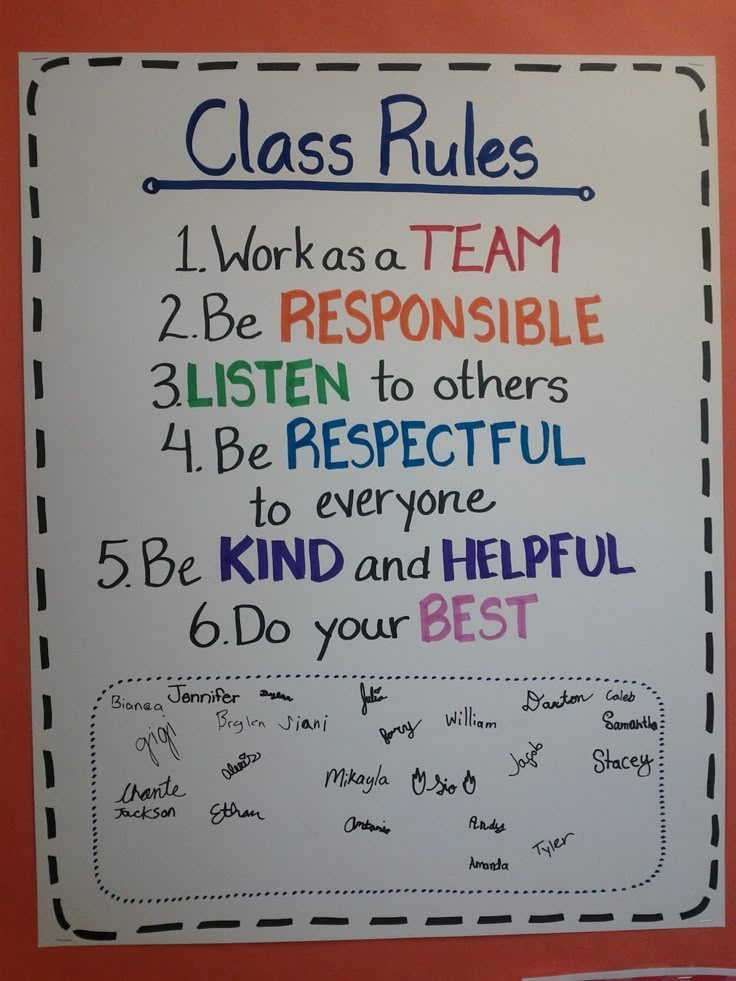 Class Rules
1. Work as a TEAM
2. Be RESPONSIBLE
3. LISTEN to others
4. Be RESPECTFUL
to everyone
5. Be KIND and HELPFUL
6. Do your BEST
Bianca Jennifer Julia Daxton Caleb
gigi Siani William Samantha
Jacob Stacey
Chante Alexis Mikayla Sio
Jackson Ethan Antonio Andy
Amanda Tyler